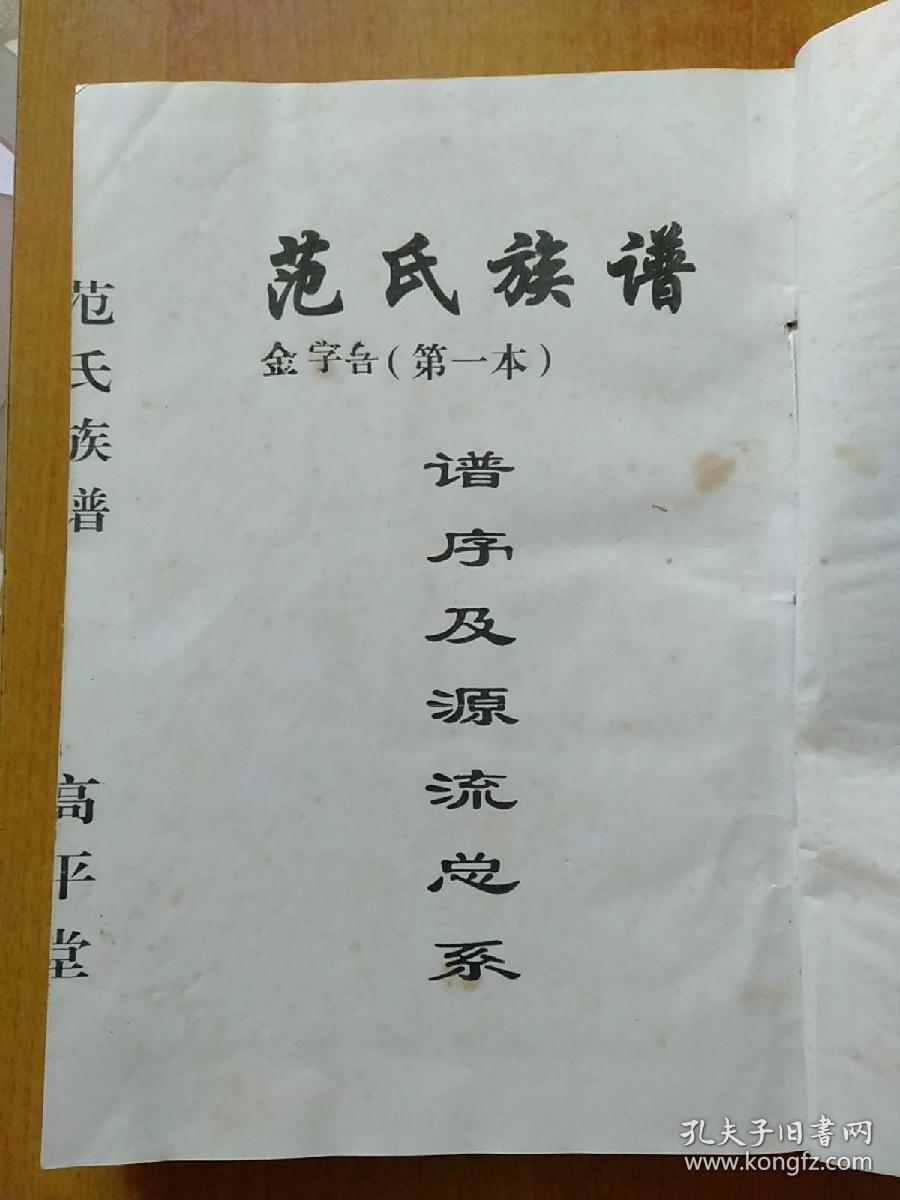 范氏族谱
金字号（第一本）
谱序及源流总系
范氏族谱
高平堂
孔夫子旧书网
www.kongfz.com